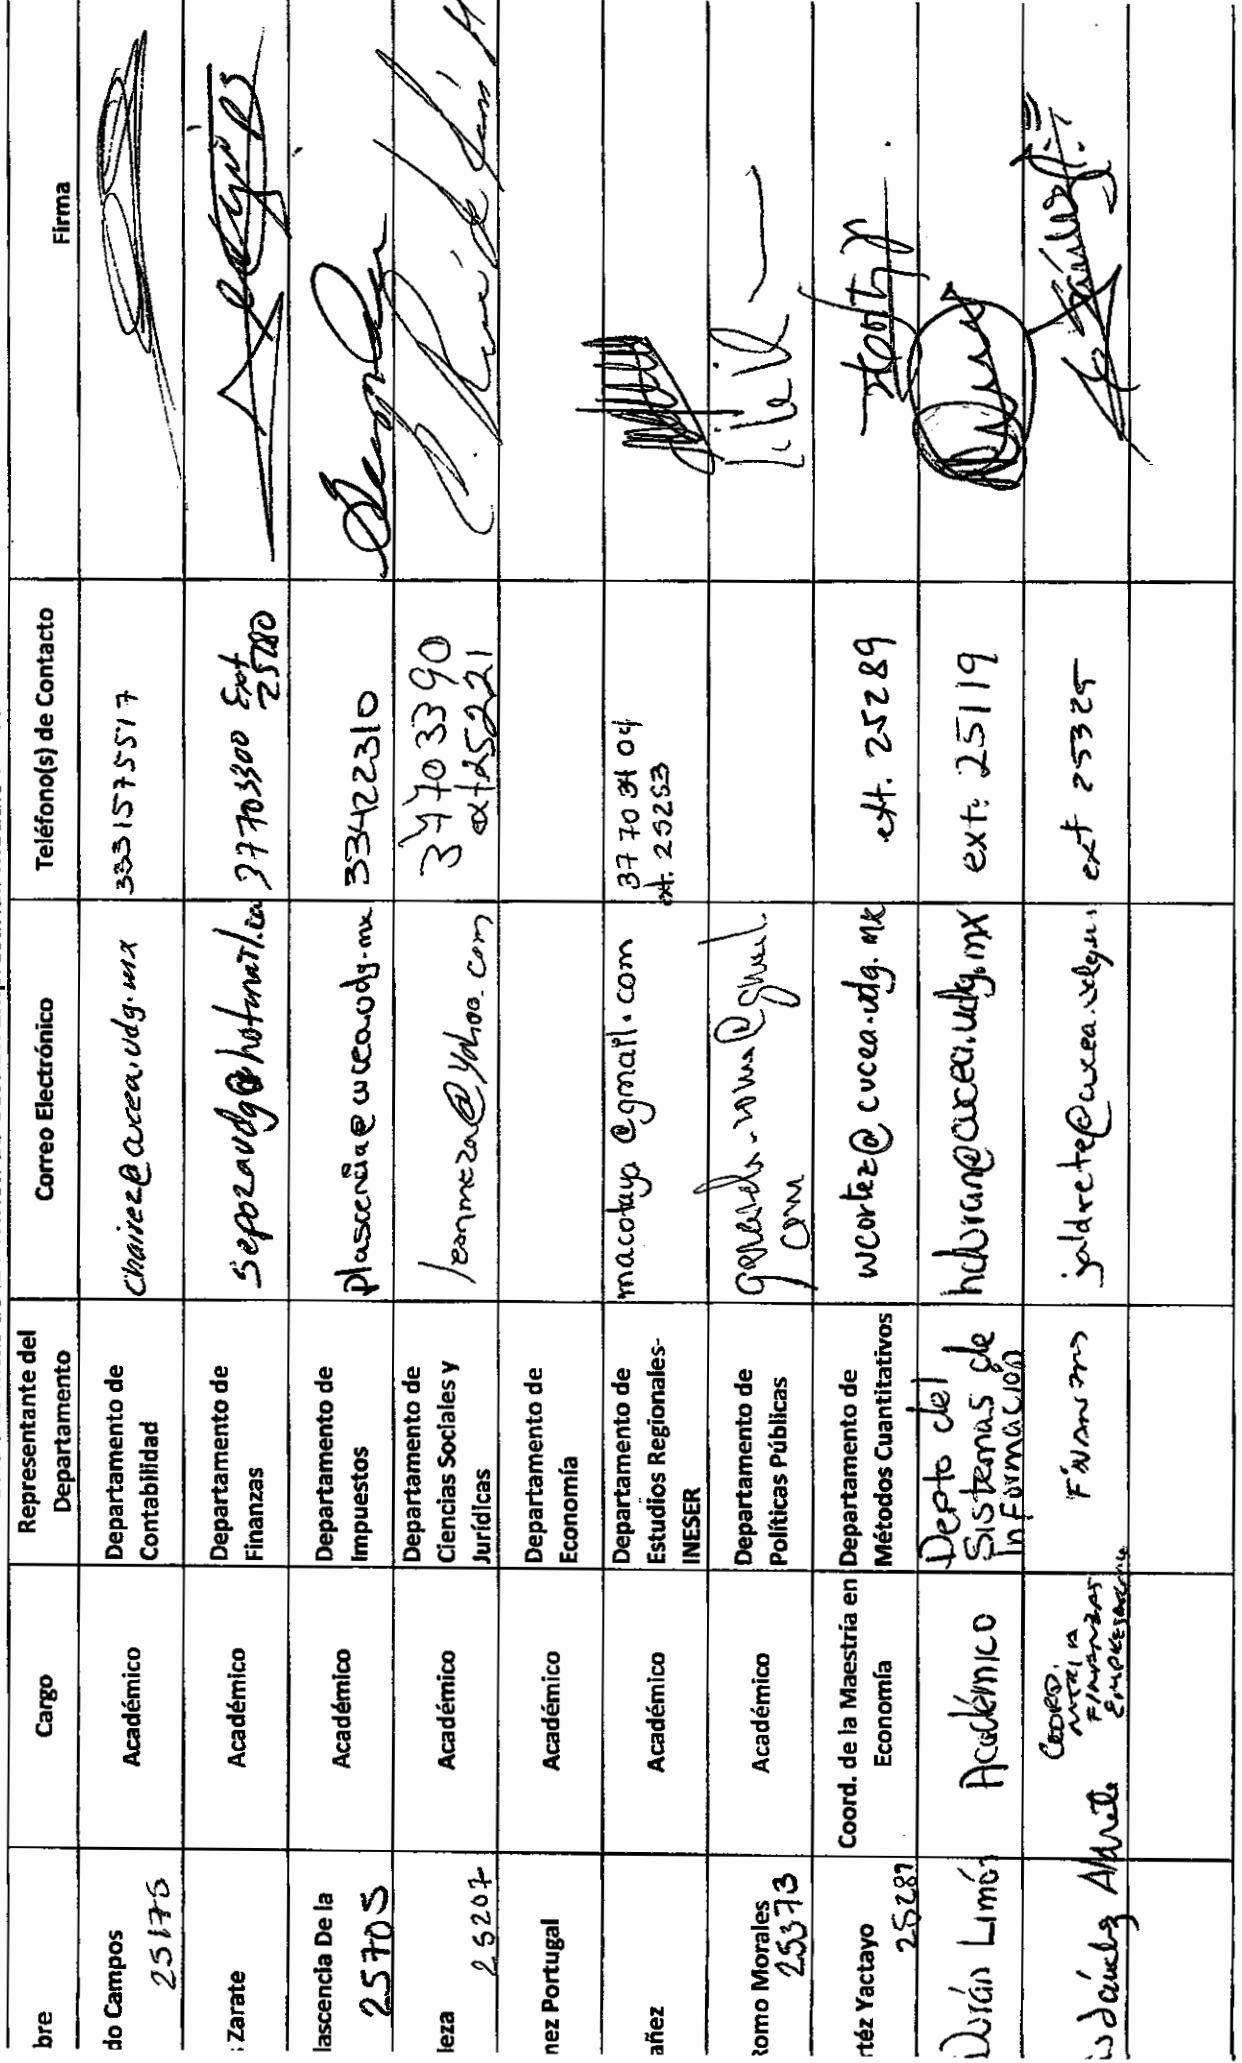 bre
Cargo
Representante del
Departamento
Correo Electrónico
Teléfono(s) de Contacto
Firma
do Campos
25175
Académico
Departamento de
Contabilidad
chairez@cucea.udg.mx
3315755517
Zarate
Académico
Departamento de
Finanzas
sepozaudg@hotmail.co
37703300 Ext
25280
lascencia De la
25705
Académico
Departamento de
Impuestos
plascencia@cucea.udg.mx
33422310
leza
25207
Académico
Departamento de
Ciencias Sociales y
Jurídicas
leanmeza@yahoo.com
37703390
ext 25221
nez Portugal
Académico
Departamento de
Economía
añez
Académico
Departamento de
Estudios Regionales-
INESER
macotaya@gmail.com
37 70 34 04
ext. 25253
Romo Morales
25373
Académico
Departamento de
Políticas Públicas
gerardo.romo@gmail.
com
rtéz Yactayo
25287
Coord. de la Maestría en
Economía
Departamento de
Métodos Cuantitativos
wcortez@cucea.udg.mx
ext. 25289
Durán Limón
Académico
Depto del
Sistemas de
Información
hduran@cucea.udg.mx
ext: 25119
Sánchez Aldrete
Coord.
Mtría
Finanzas
Empresariales
Finanzas
jaldrete@cucea.udg.
ext 25325